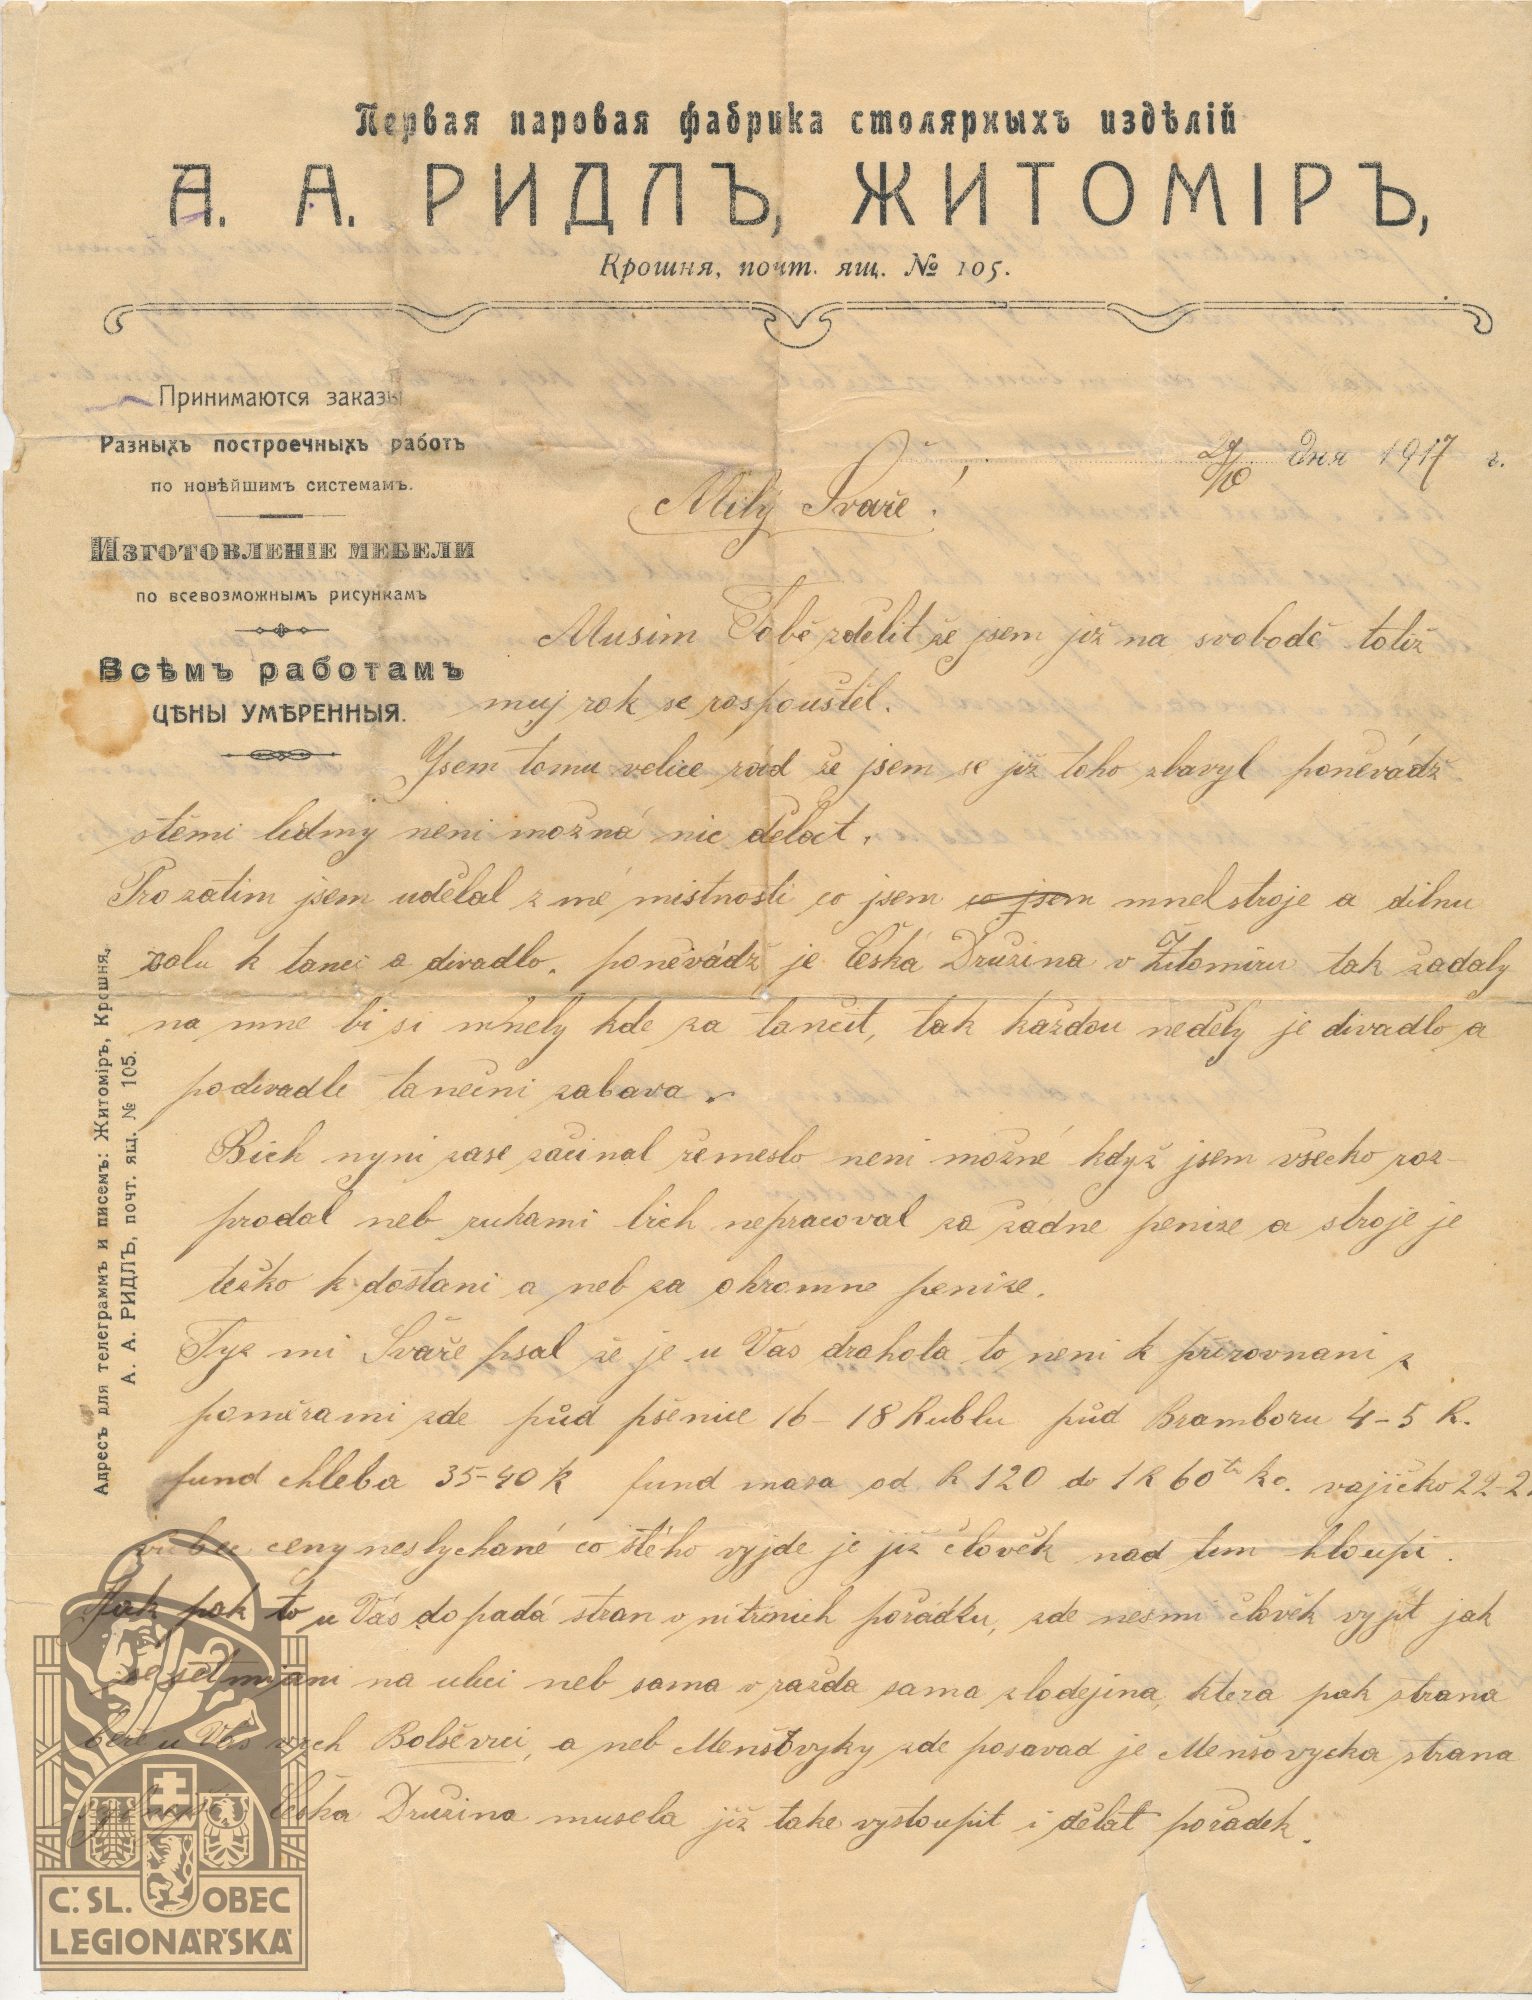 Первая паровая фабрика столярныхъ издѣлій
А. А. РИДЛЪ, ЖИТОМІРЪ,
Крошня, почт. ящ. № 105.
Принимаются заказы
Разныхъ построечныхъ работъ
по новѣйшимъ системамъ.
Изготовленіе мебели
по всевозможнымъ рисункамъ
Всѣмъ работамъ
ЦѢНЫ УМѢРЕННЫЯ.
Адресъ для телеграммъ и писемъ: Житоміръ, Крошня,
А. А. РИДЛЪ, почт. ящ. № 105.
29/10 дня 1917 г.
Milý Švaře!
Musim Tobě zdělit že jsem již na svobodě totiž
muj rok se rospouštěl.
Jsem tomu velice rád že jsem se již toho zbavyl poněvádž
stěmi lidmy neni možná nic dělat.
Prozatim jsem udělal z mé mistnosti co jsem co jsem mnel stroje a dilnu
zalu k tanci a divadlo. poněvádž je Česká Družina v Žitomiru tak žadaly
na mne bi si mnely kde za tančit, tak každou neděly je divadlo a
podivadle tanečni zabava.
Bich nyni zase začinal řemeslo neni možné když jsem všecko roz-
prodal neb rukami bich nepracoval za žadne penize a stroje je
težko k dostani a neb za ohromne penize.
Tyz mi Švaře psal že je u Vas drahota to neni k přirovnani z
poměrami zde půd pšenice 16-18 Rublu půd Bramboru 4-5 R.
fund chleba 35-40 k fund masa od R 120 do 1 R 60 ko. vajičko 22-2
vubec ceny neslychané co stého vyjde je již člověk nad tim hloupi.
Jak pak to u Vás dopadá stran vnitrnich pořádku, zde nesmi člověk vyjit jak
se setmjani na ulici neb sama vražda sama zlodejina, ktera pak strana
beře u Vás vrch Bolševici, a neb Menšovyky zde posavad je Menšovycka strana
Česka Družina musela již take vystoupit i dělat pořadek.
Č. SL. OBEC
LEGIONÁŘSKÁ